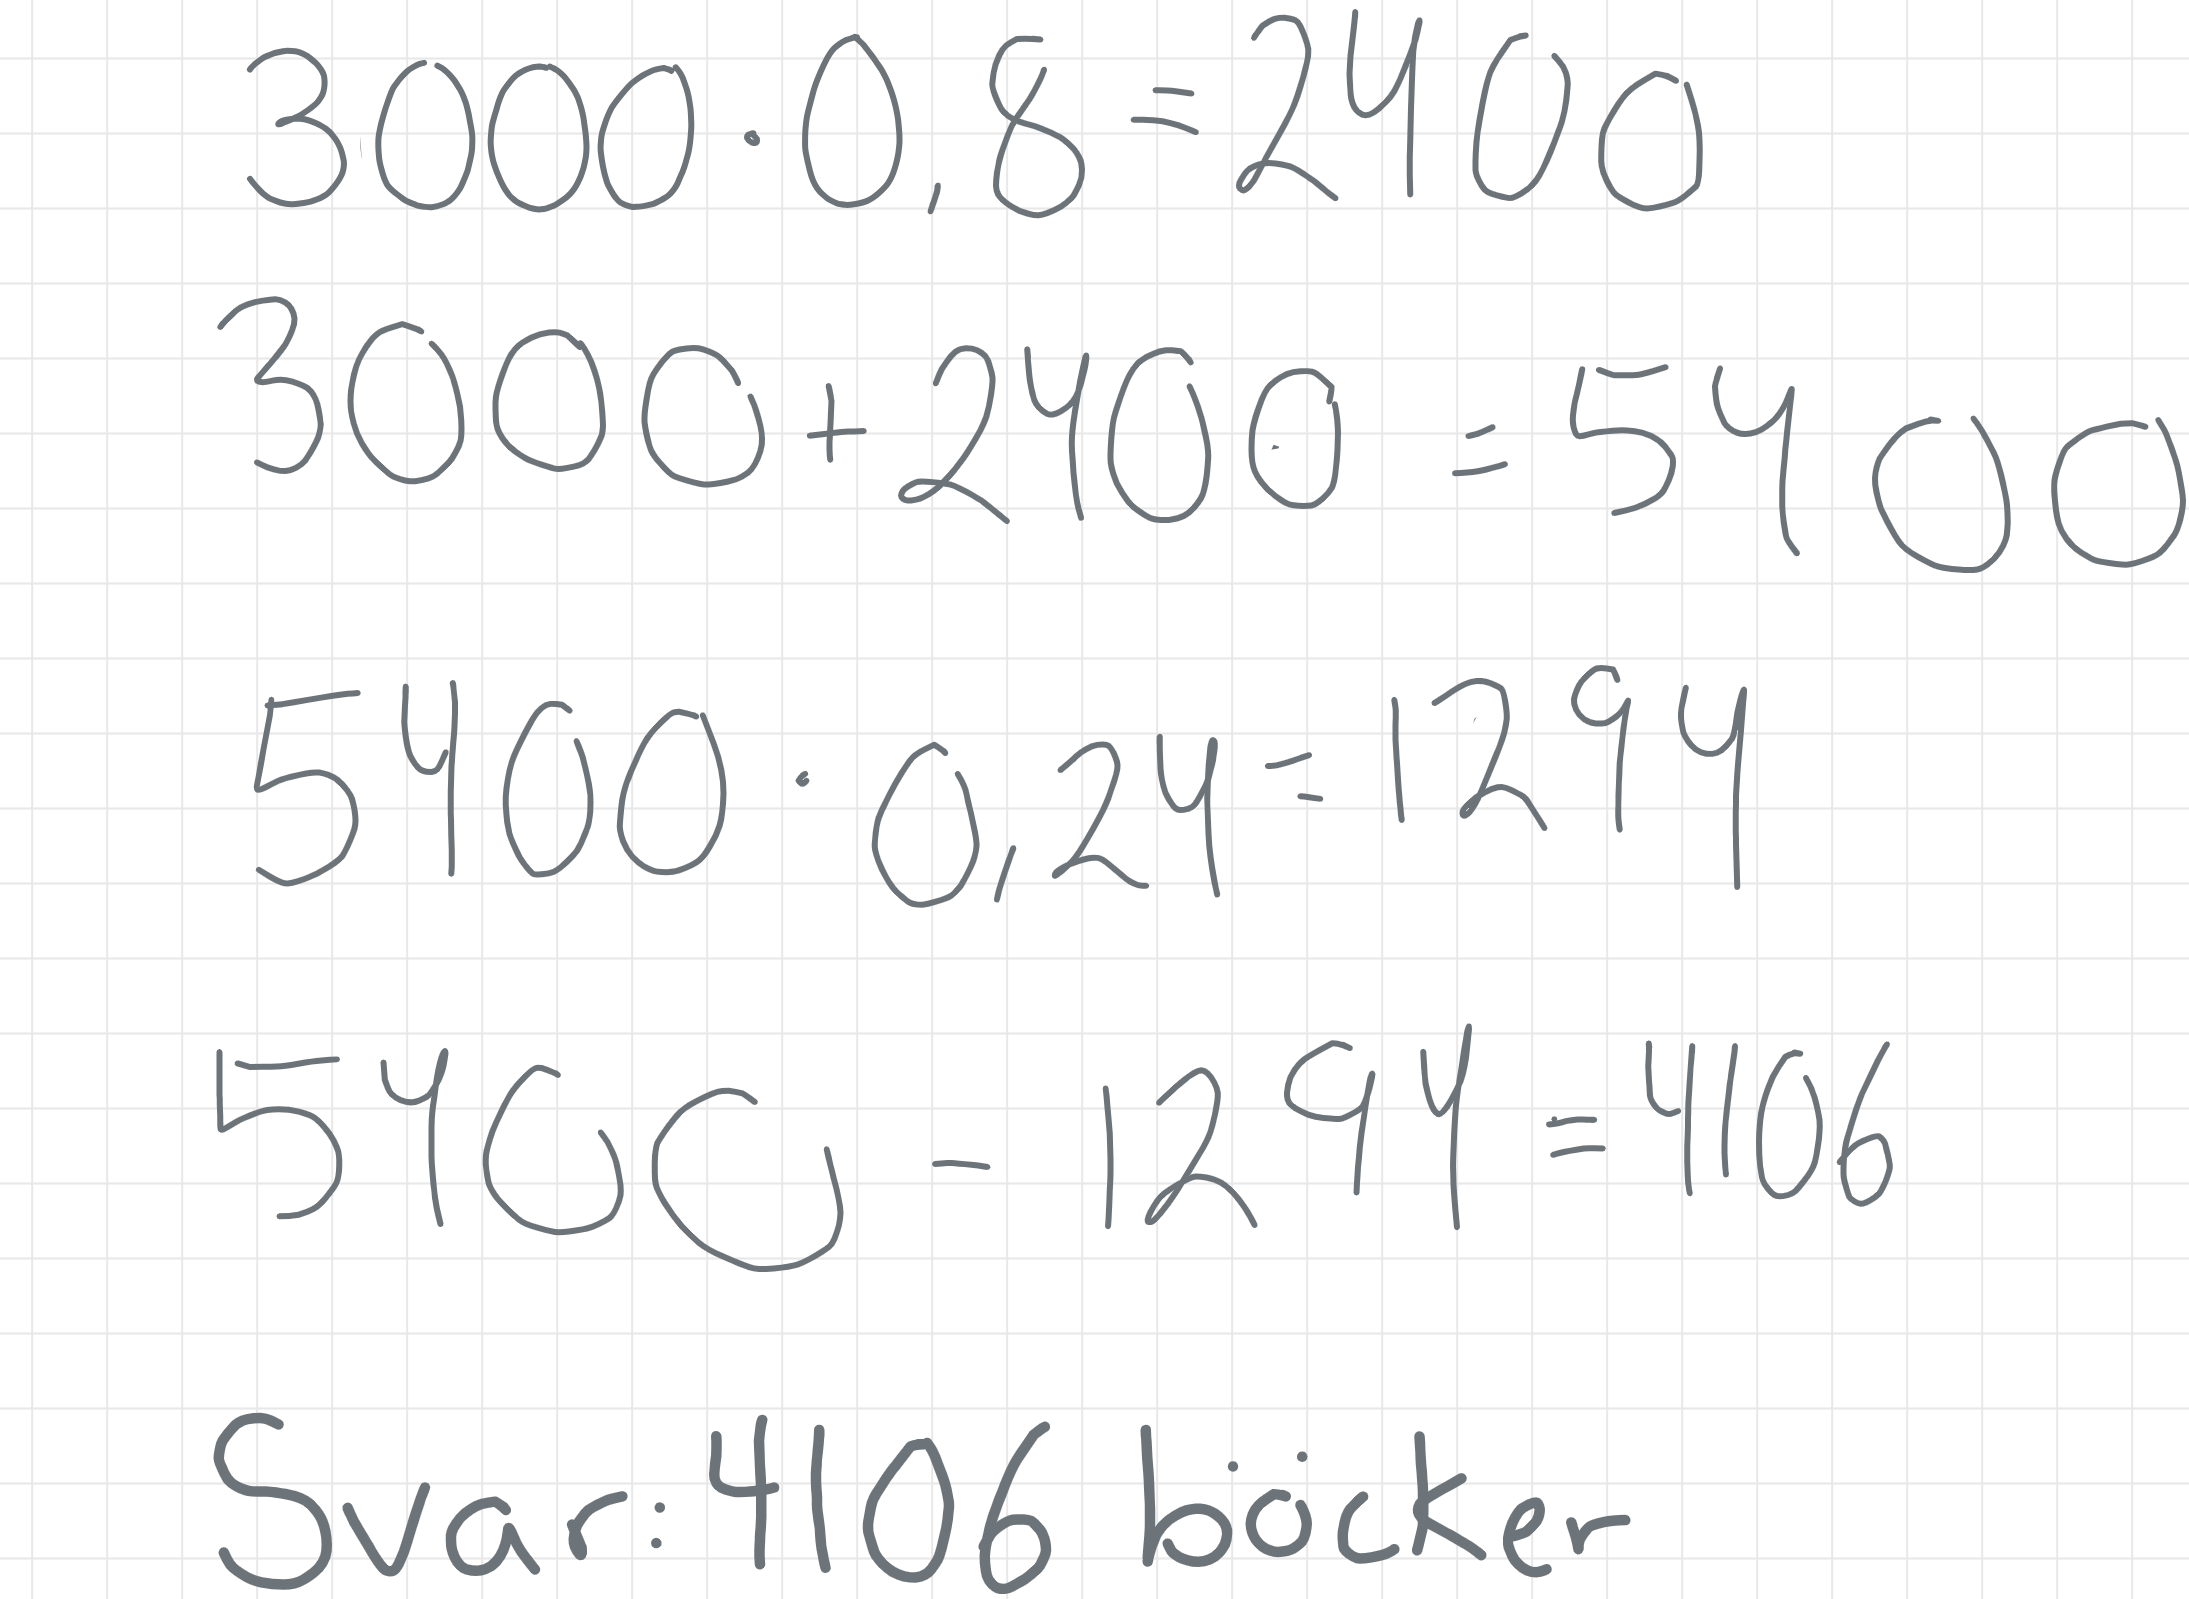 3000 · 0,8 = 2400
3000 + 2400 = 5400
5400 · 0,24 = 1294
5400 - 1294 = 4106
Svar: 4106 böcker